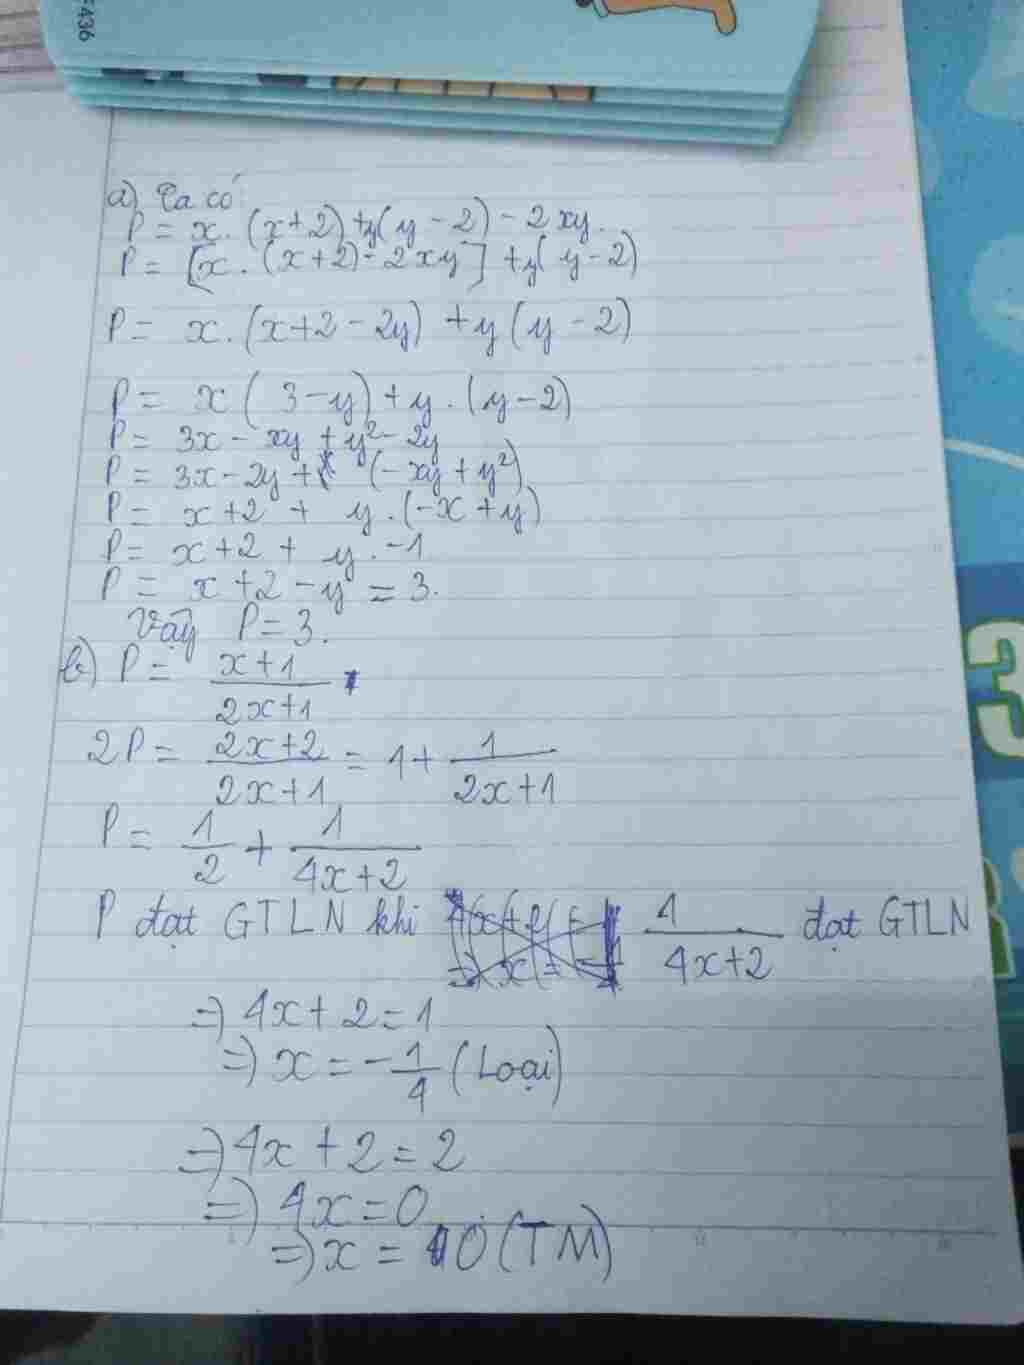 F436
a) Ta có
P = x. (x+2) + y(y - 2) - 2xy.
P = [x. (x+2) - 2xy] + y(y - 2)
P = x. (x+2 - 2y) + y(y - 2)
P = x (3 - y) + y. (y - 2)
P = 3x - xy + y² - 2y
P = 3x - 2y + (-xy + y²)
P = x + 2 + y. (-x + y)
P = x + 2 + y. -1
P = x + 2 - y = 3.
Vậy P = 3.
b) P = \frac{x+1}{2x+1}
2P = \frac{2x+2}{2x+1} = 1 + \frac{1}{2x+1}
P = \frac{1}{2} + \frac{1}{4x+2}
P đạt GTLN khi \frac{1}{4x+2} đạt GTLN
=> 4x + 2 = 1
=> x = -\frac{1}{4} (Loại)
=> 4x + 2 = 2
=> 4x = 0
=> x = 0 (TM)
3